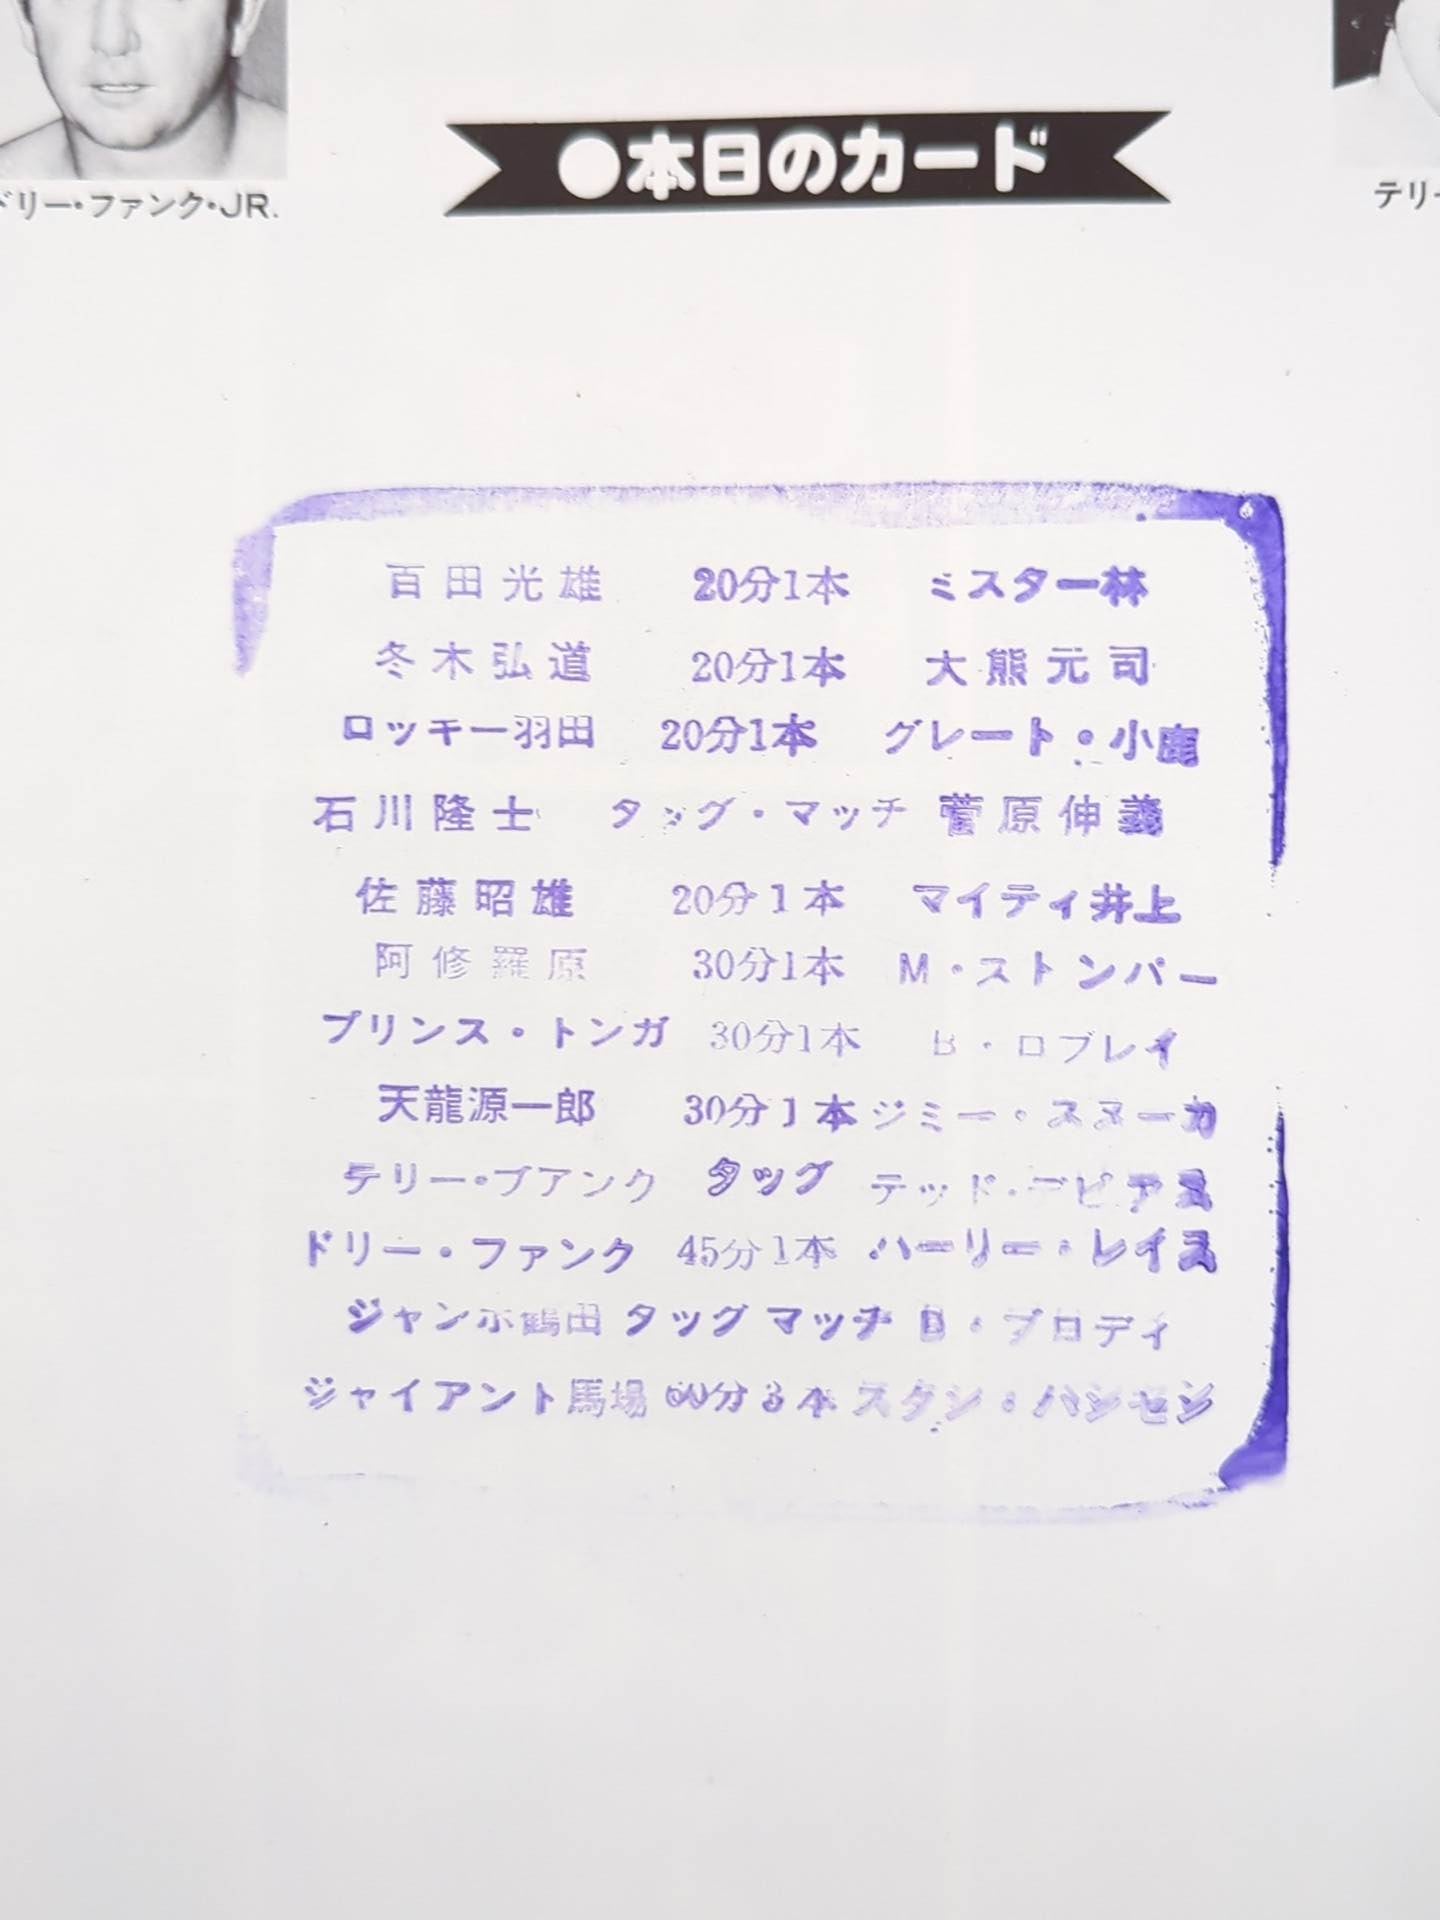 ドリー・ファンク・JR.
テリー
●本日のカード
百田光雄 20分1本 ミスター林
冬木弘道 20分1本 大熊元司
ロッキー羽田 20分1本 グレート・小鹿
石川隆士 タッグ・マッチ 菅原伸義
佐藤昭雄 20分1本 マイティ井上
阿修羅原 30分1本 M・ストンパー
プリンス・トンガ 30分1本 B・ロブレイ
天龍源一郎 30分1本 ジミー・スヌーカ
テリー・ファンク タッグ テッド・デビアス
ドリー・ファンク 45分1本 ハーリー・レイス
ジャンボ鶴田 タッグマッチ B・ブロディ
ジャイアント馬場 60分3本 スタン・ハンセン